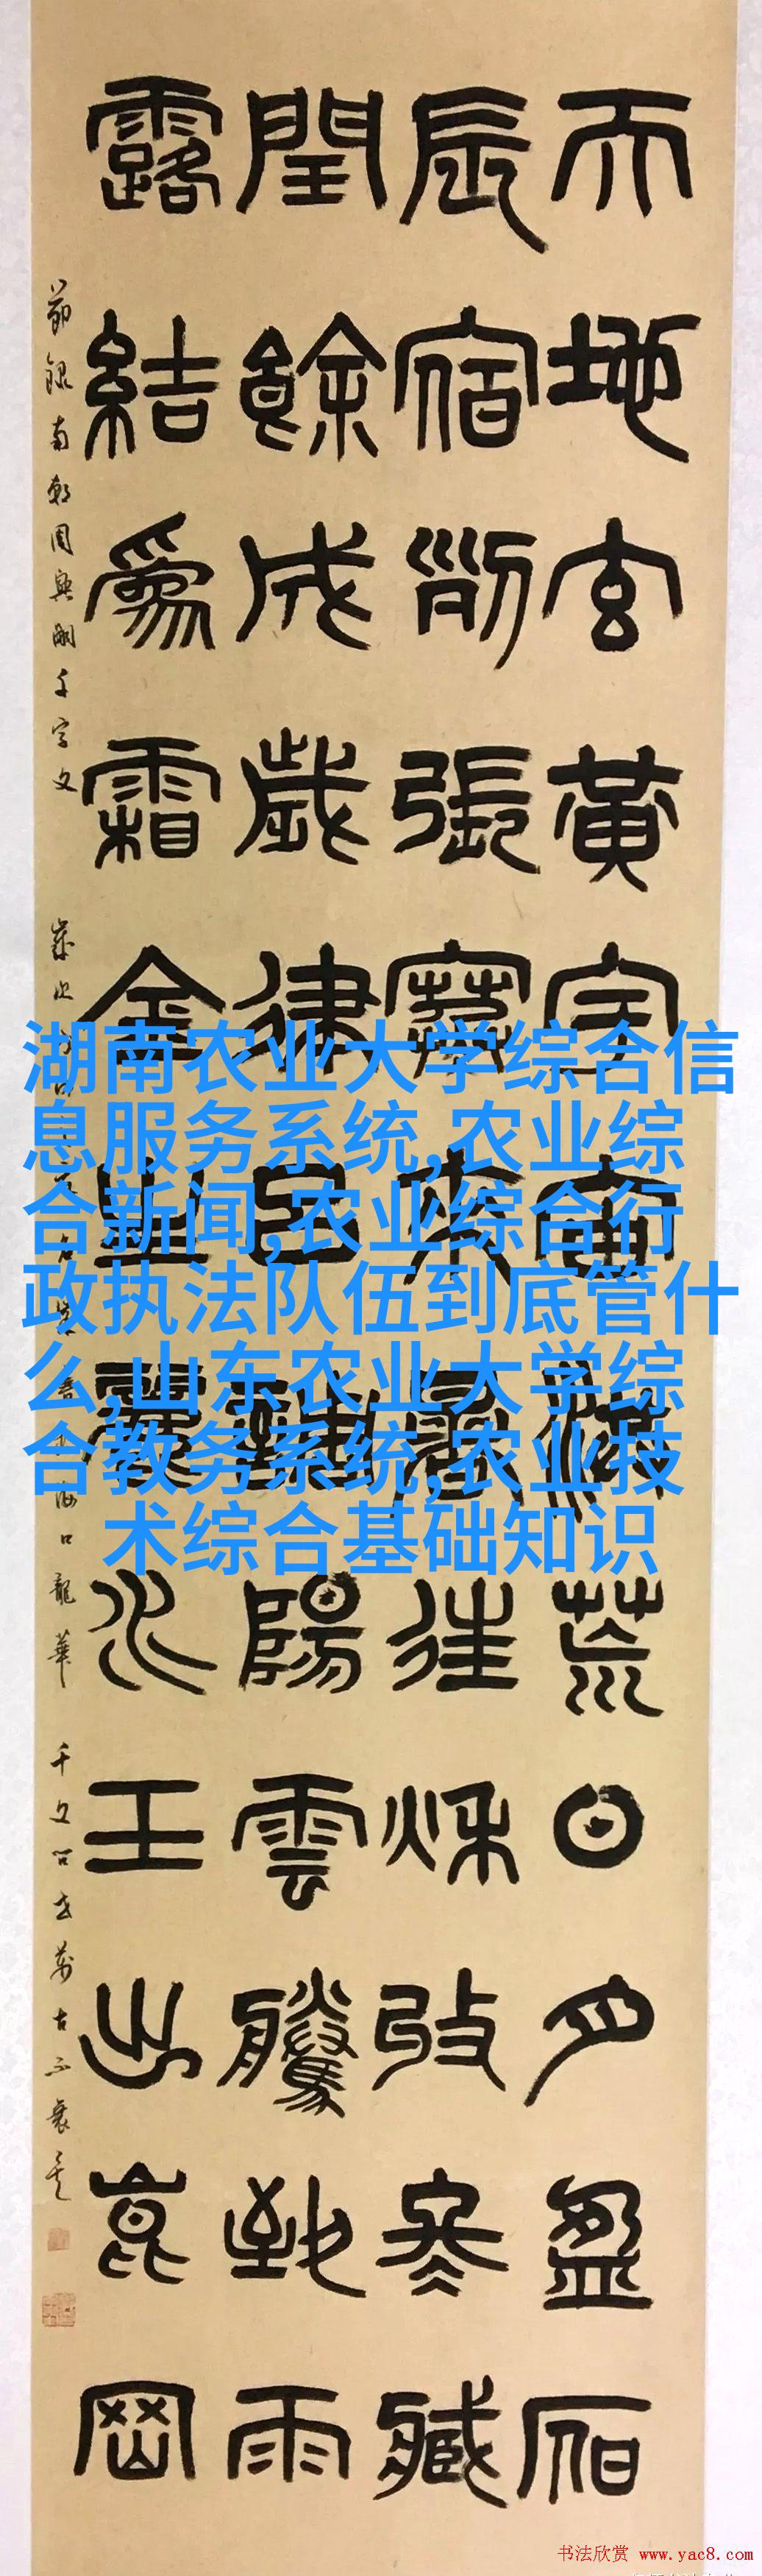 天地玄黃宇宙洪荒日月盈昃
辰宿列張寒來暑往秋收冬藏
閏餘成歲律呂調陽雲騰致雨
露結爲霜金生麗水玉出崑岡
節錄南朝周興嗣千字文 歲次 海口龍華 千文 萬古不衰矣
湖南农业大学综合信
息服务系统,农业综
合新闻,农业综合行
政执法队伍到底管什
么,山东农业大学综
合教务系统,农业技
术综合基础知识
书法欣赏 www.yac8.com